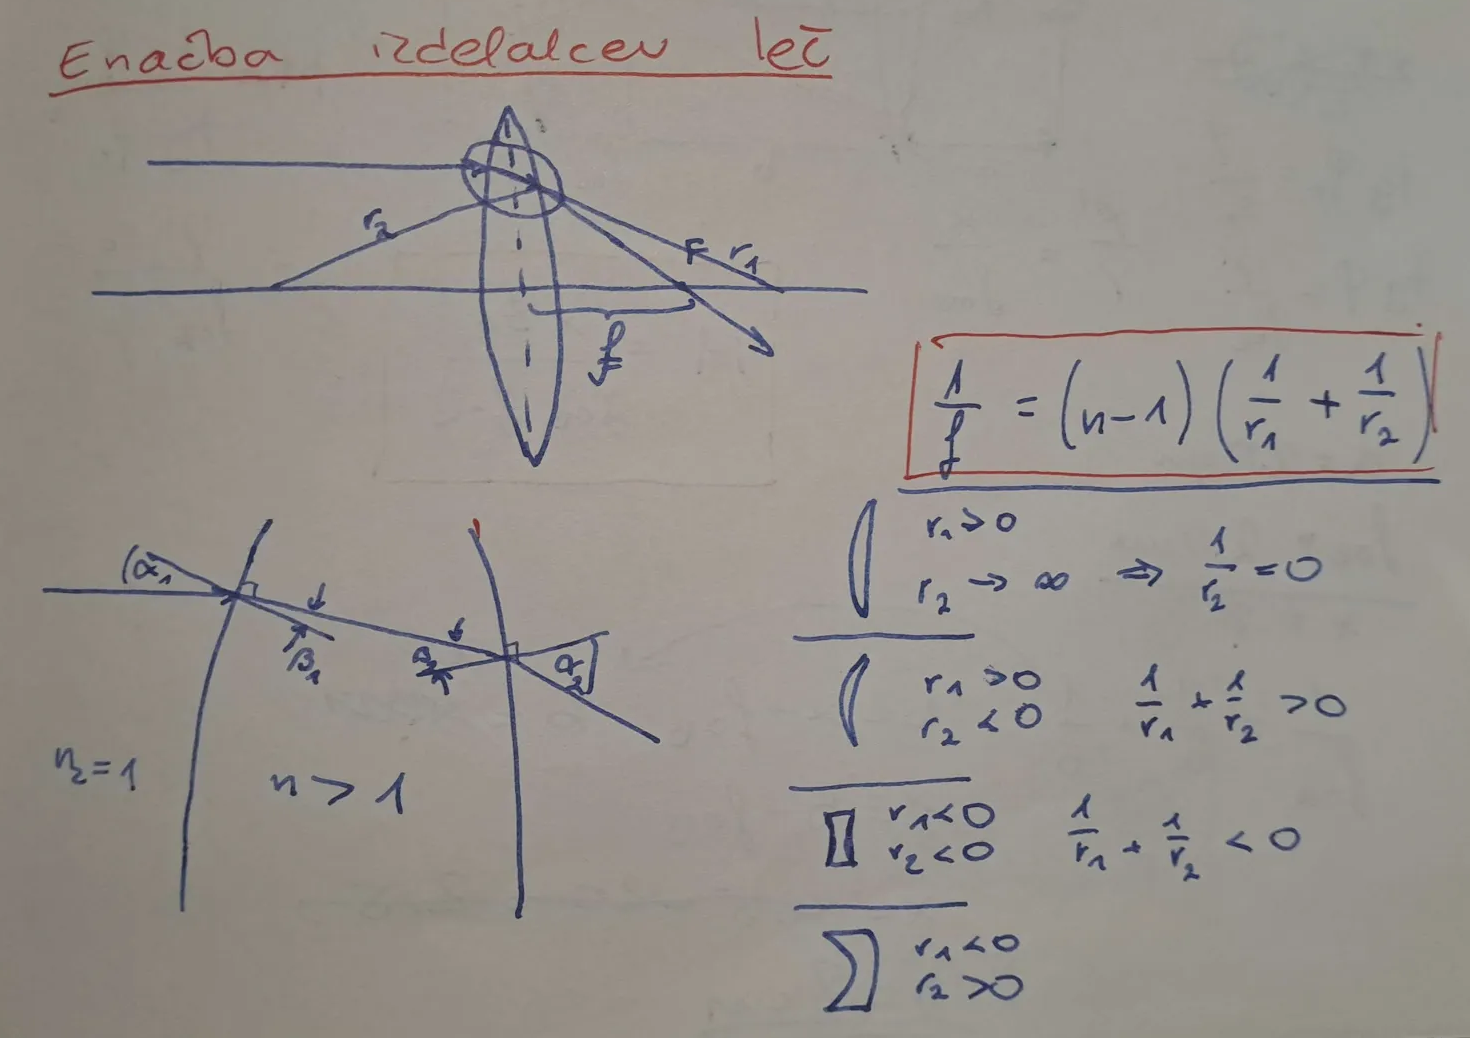 Enačba izdelalcev leč
r₂
F r₁
f
1/f = (n-1) (1/r₁ + 1/r₂)
r₁ > 0
r₂ → ∞ ⇒ 1/r₂ = 0
α₁
β₁
α₂
r₁ > 0
r₂ < 0 1/r₁ + 1/r₂ > 0
n₂ = 1
n > 1
r₁ < 0
r₂ < 0 1/r₁ + 1/r₂ < 0
r₁ < 0
r₂ > 0